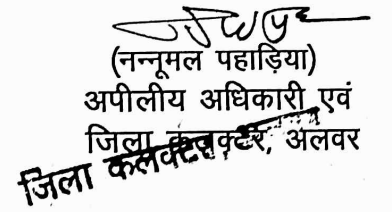 (नन्नूमल पहाड़िया)
अपीलीय अधिकारी एवं
जिला कलक्टर, अलवर
जिला कलक्टर